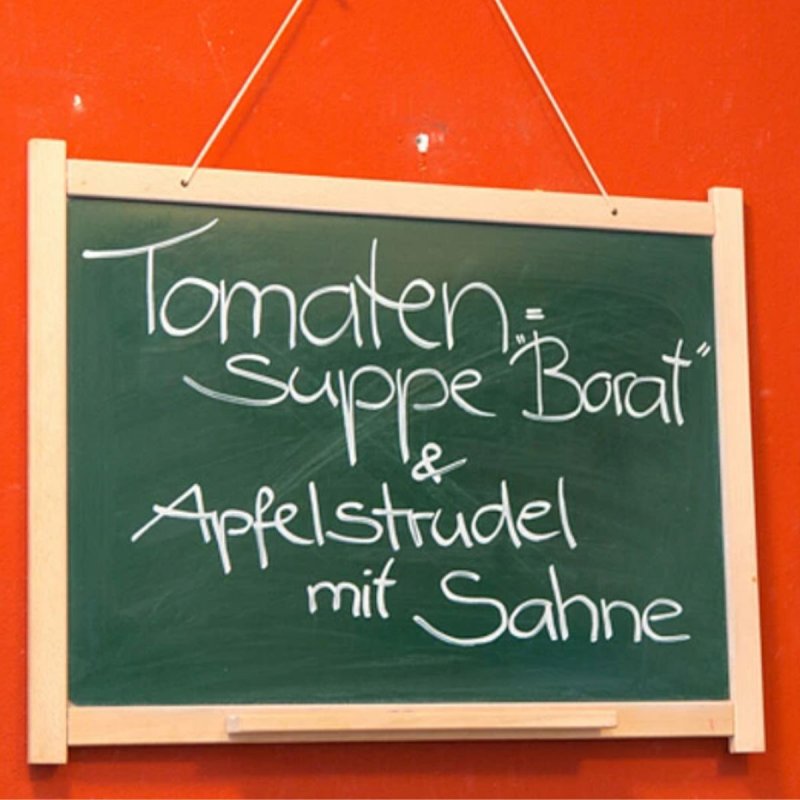 Tomaten=
suppe "Borat"
&
Apfelstrudel
mit Sahne